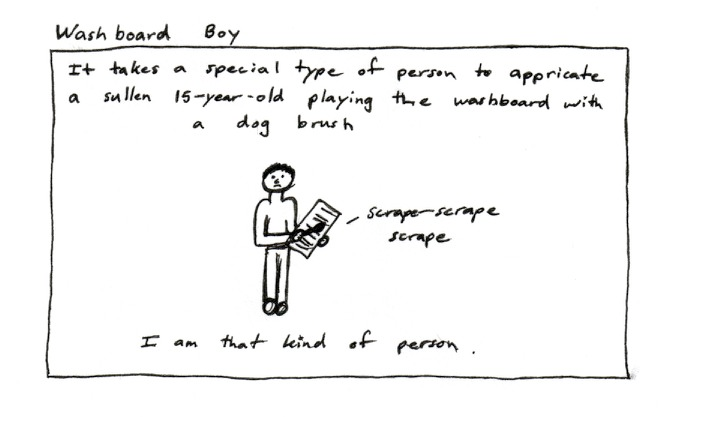 Wash board Boy
It takes a special type of person to appricate
a sullen 15-year-old playing the washboard with
a dog brush
scrape-scrape
scrape
I am that kind of person.